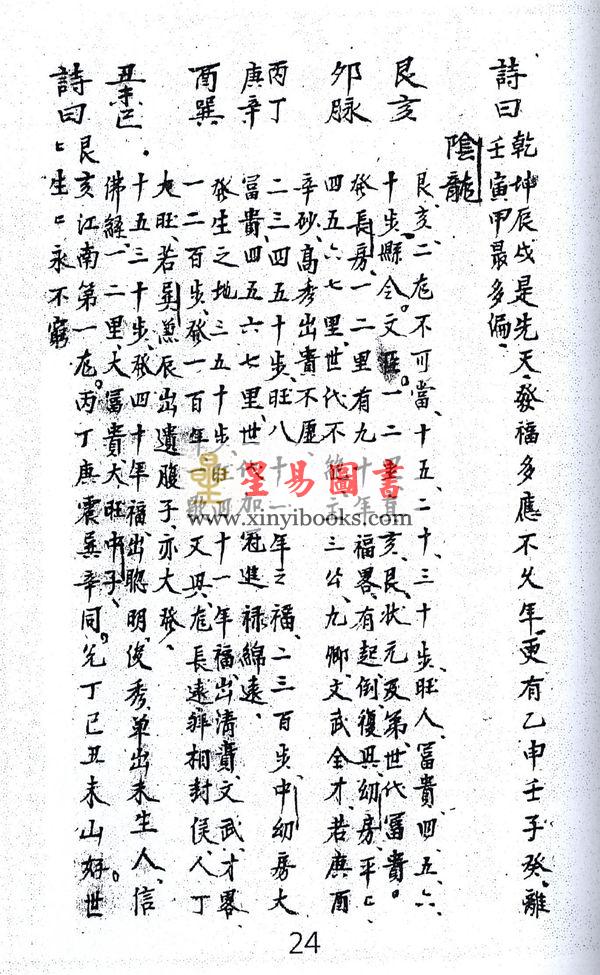 詩曰 乾坤辰戌是先天、發福多應不久年、更有乙申壬子癸、離
壬寅甲最多偏、
陰龍
艮亥 艮、亥、二龙不可當、十五、二十、三十步、旺人、冨貴四、五、六、
十步、縣令、文 一二里、亥、艮、狀元及第世代冨貴。
卯脉 發長房、一二里有九 福畧有起倒、復興、幼房、平亡
四五六七里、世代不 三公、九卿、文武全才若庚酉
辛砂、高秀出貴不
丙丁 二三四五十步、旺八 十一年之福、二三百步、中幼房大
庚辛 冨貴、四五六七里、世代加冠進禄綿遠、
發生之地、三五十步、旺 十一年福、出清貴、文武、才畧
酉巽 一二百步、發一百年一歇 又興、龙長遠 相封侯、人丁
大旺、若巽 辰出遺腹子、亦大發、
丑未巳 十五三十步、發四十年福、出聰明、俊秀单出未生人、信
佛 、一二里、大冨貴、大旺中子、
詩曰 艮亥江南第一龙。丙丁庚震巽辛同。 丁巳丑未山好。世
世生生永不窮
星易圖書
www.xinyibooks.com
24